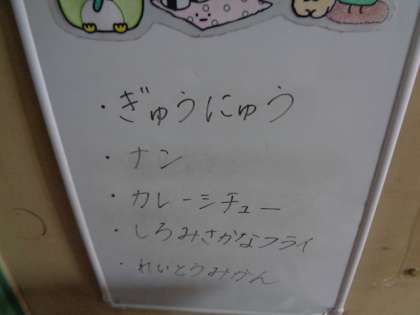 ・ぎゅうにゅう
・ナン
・カレーシチュー
・しろみさかなフライ
・れいとうみかん